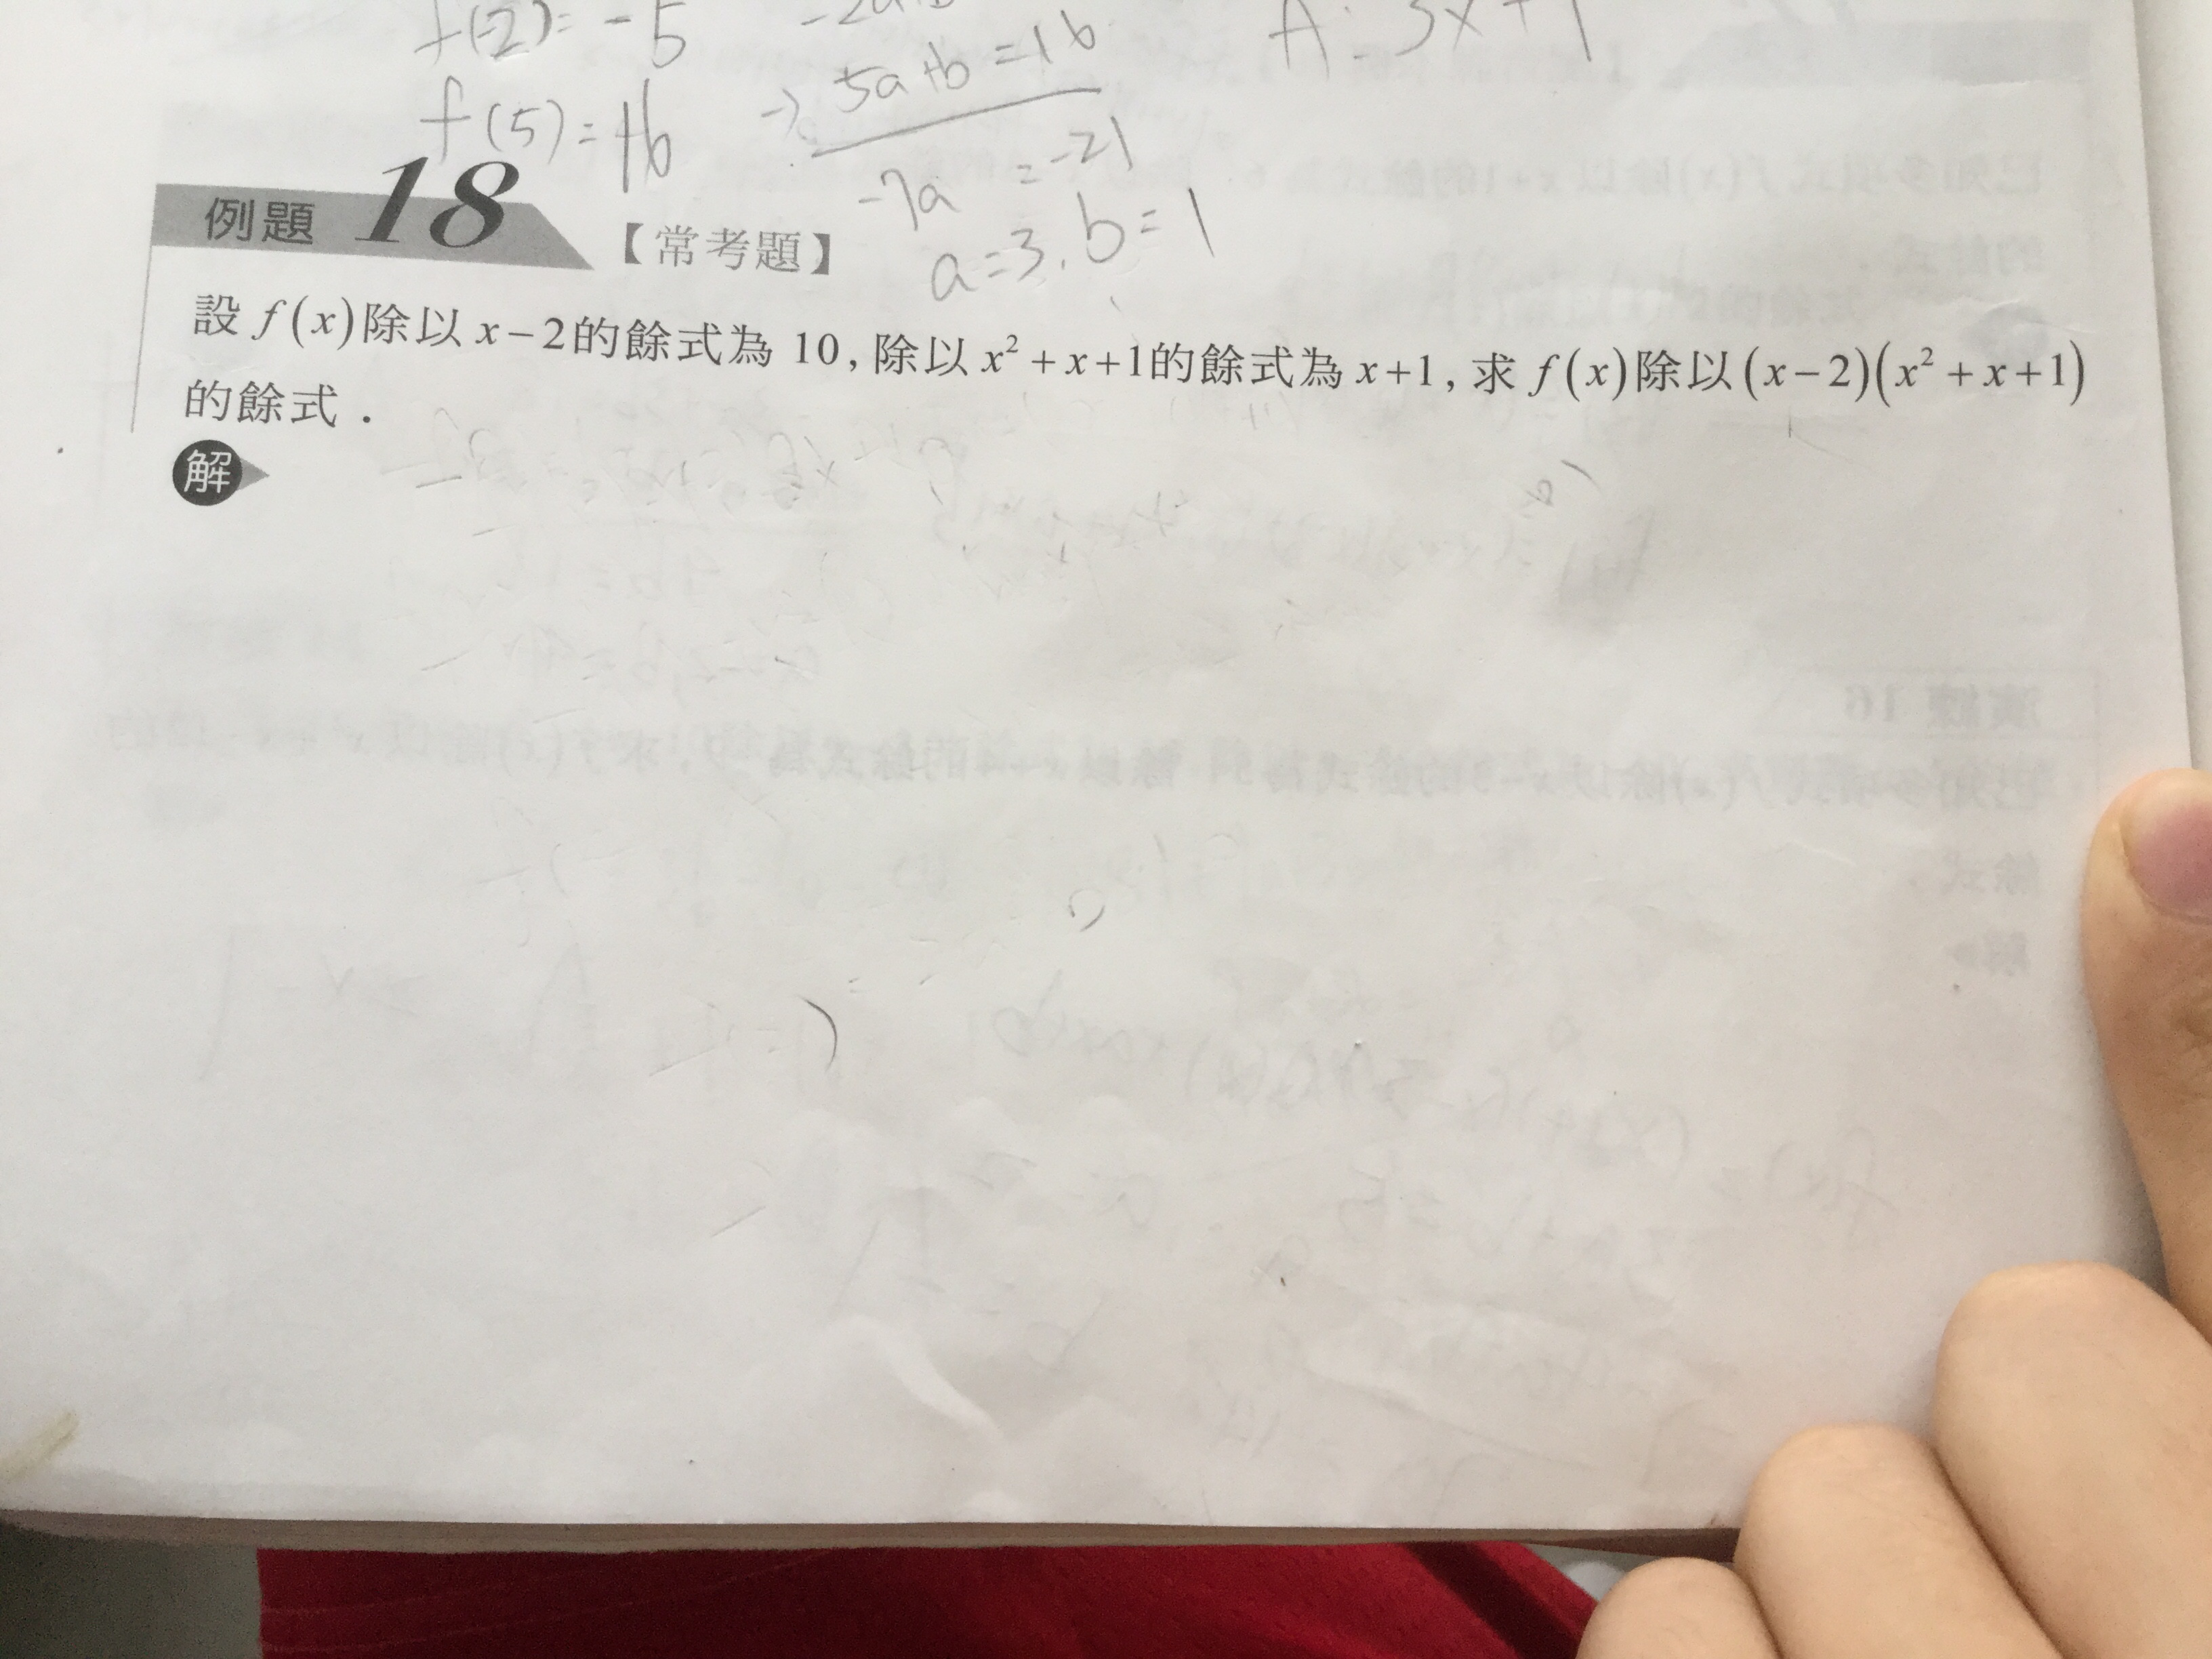 f(-2)= -5
f(5)=16 → 5a+b=16
-7a =-21
a=3, b=1
A: 3x+1
例題 18 【常考題】
設 f(x)除以 x−2的餘式為 10, 除以 x²+x+1的餘式為 x+1, 求 f(x)除以(x−2)(x²+x+1)
的餘式.
解